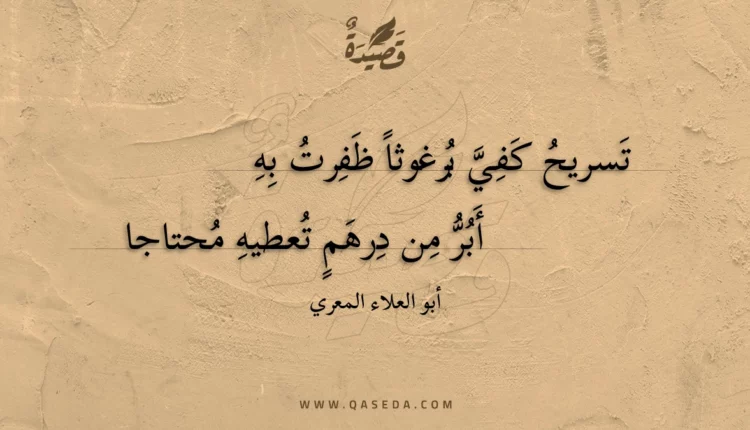 قَصِيْدَةٌ
تَسريحُ كَفِيَّ بُرغوثاً ظَفِرتُ بِهِ
أَبُرُّ مِن دِرهَمٍ تُعطيهِ مُحتاجا
أبو العلاء المعري
WWW.QASEDA.COM